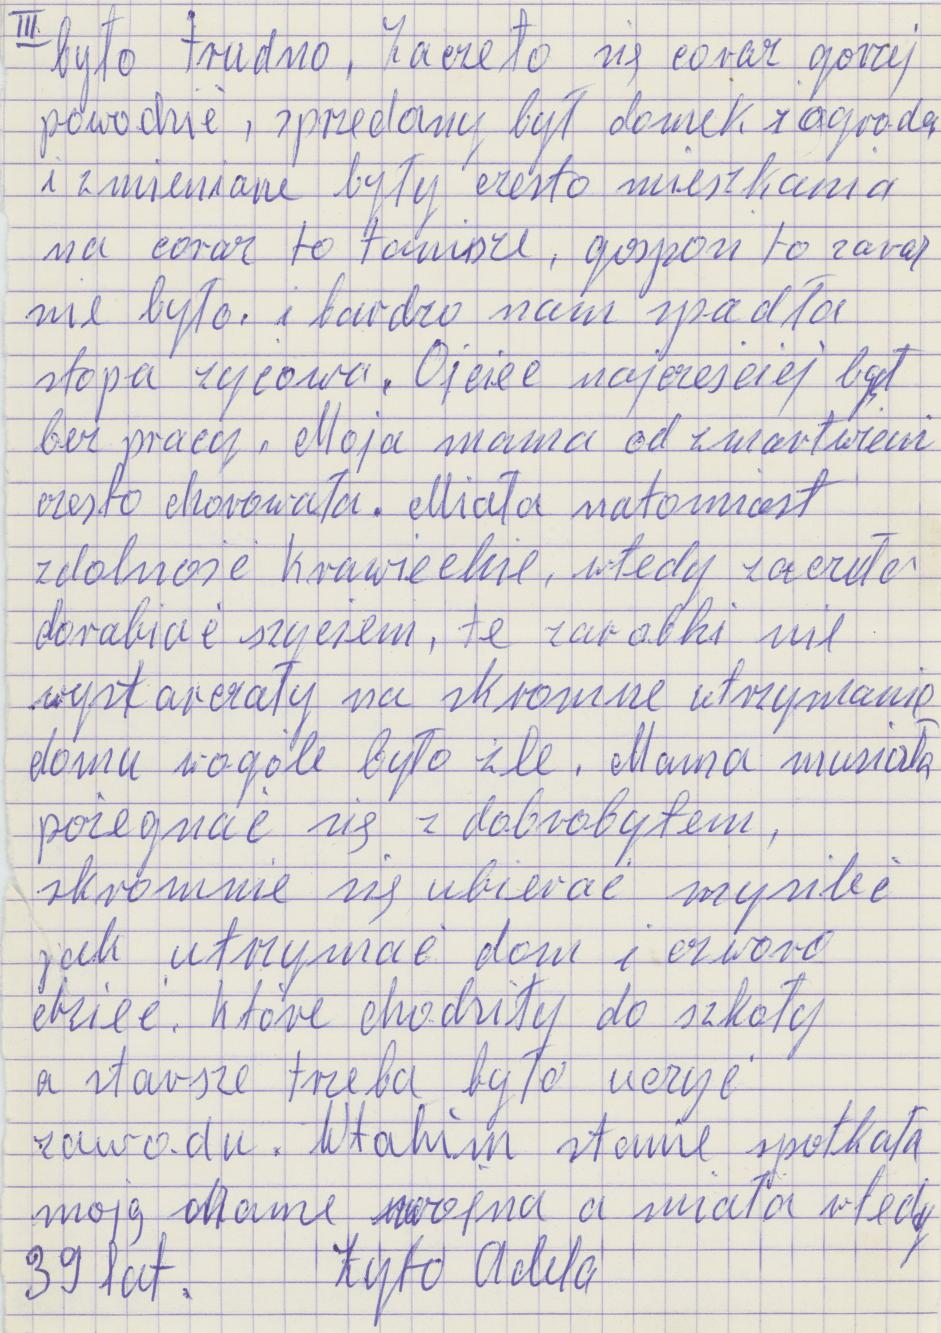 III
było trudno, Zaczęło się coraz gorzej
powodzić, sprzedany był domek z ogrodą
i zmieniane były często mieszkania
na coraz to tańsze, gosposi to zaraz
nie było. i bardzo nam spadła
stopa życiowa. Ojciec najczęściej był
bez pracy. Moja mama od zmartwień
często chorowała. Miała natomiast
zdolność krawieckie, wtedy zaczęła
dorabiać szyciem, te zarobki nie
wystarczały na skromne utrzymanie
domu wogóle było źle. Mama musiała
pożegnać się z dobrobytem,
skromnie się ubierać myśleć
jak utrzymać dom i czworo
dzieć. które chodziły do szkoły
a starsze trzeba było uczyć
zawodu. Wtakim stanie spotkała
moją mame wojna a miała wtedy
39 lat. Żyto Adela